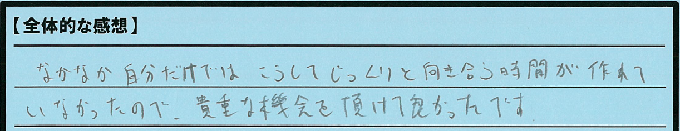 【全体的な感想】
なかなか自分だけでは こうしてじっくりと向き合う時間が作れて
いなかったので、貴重な機会を頂けて良かったです。